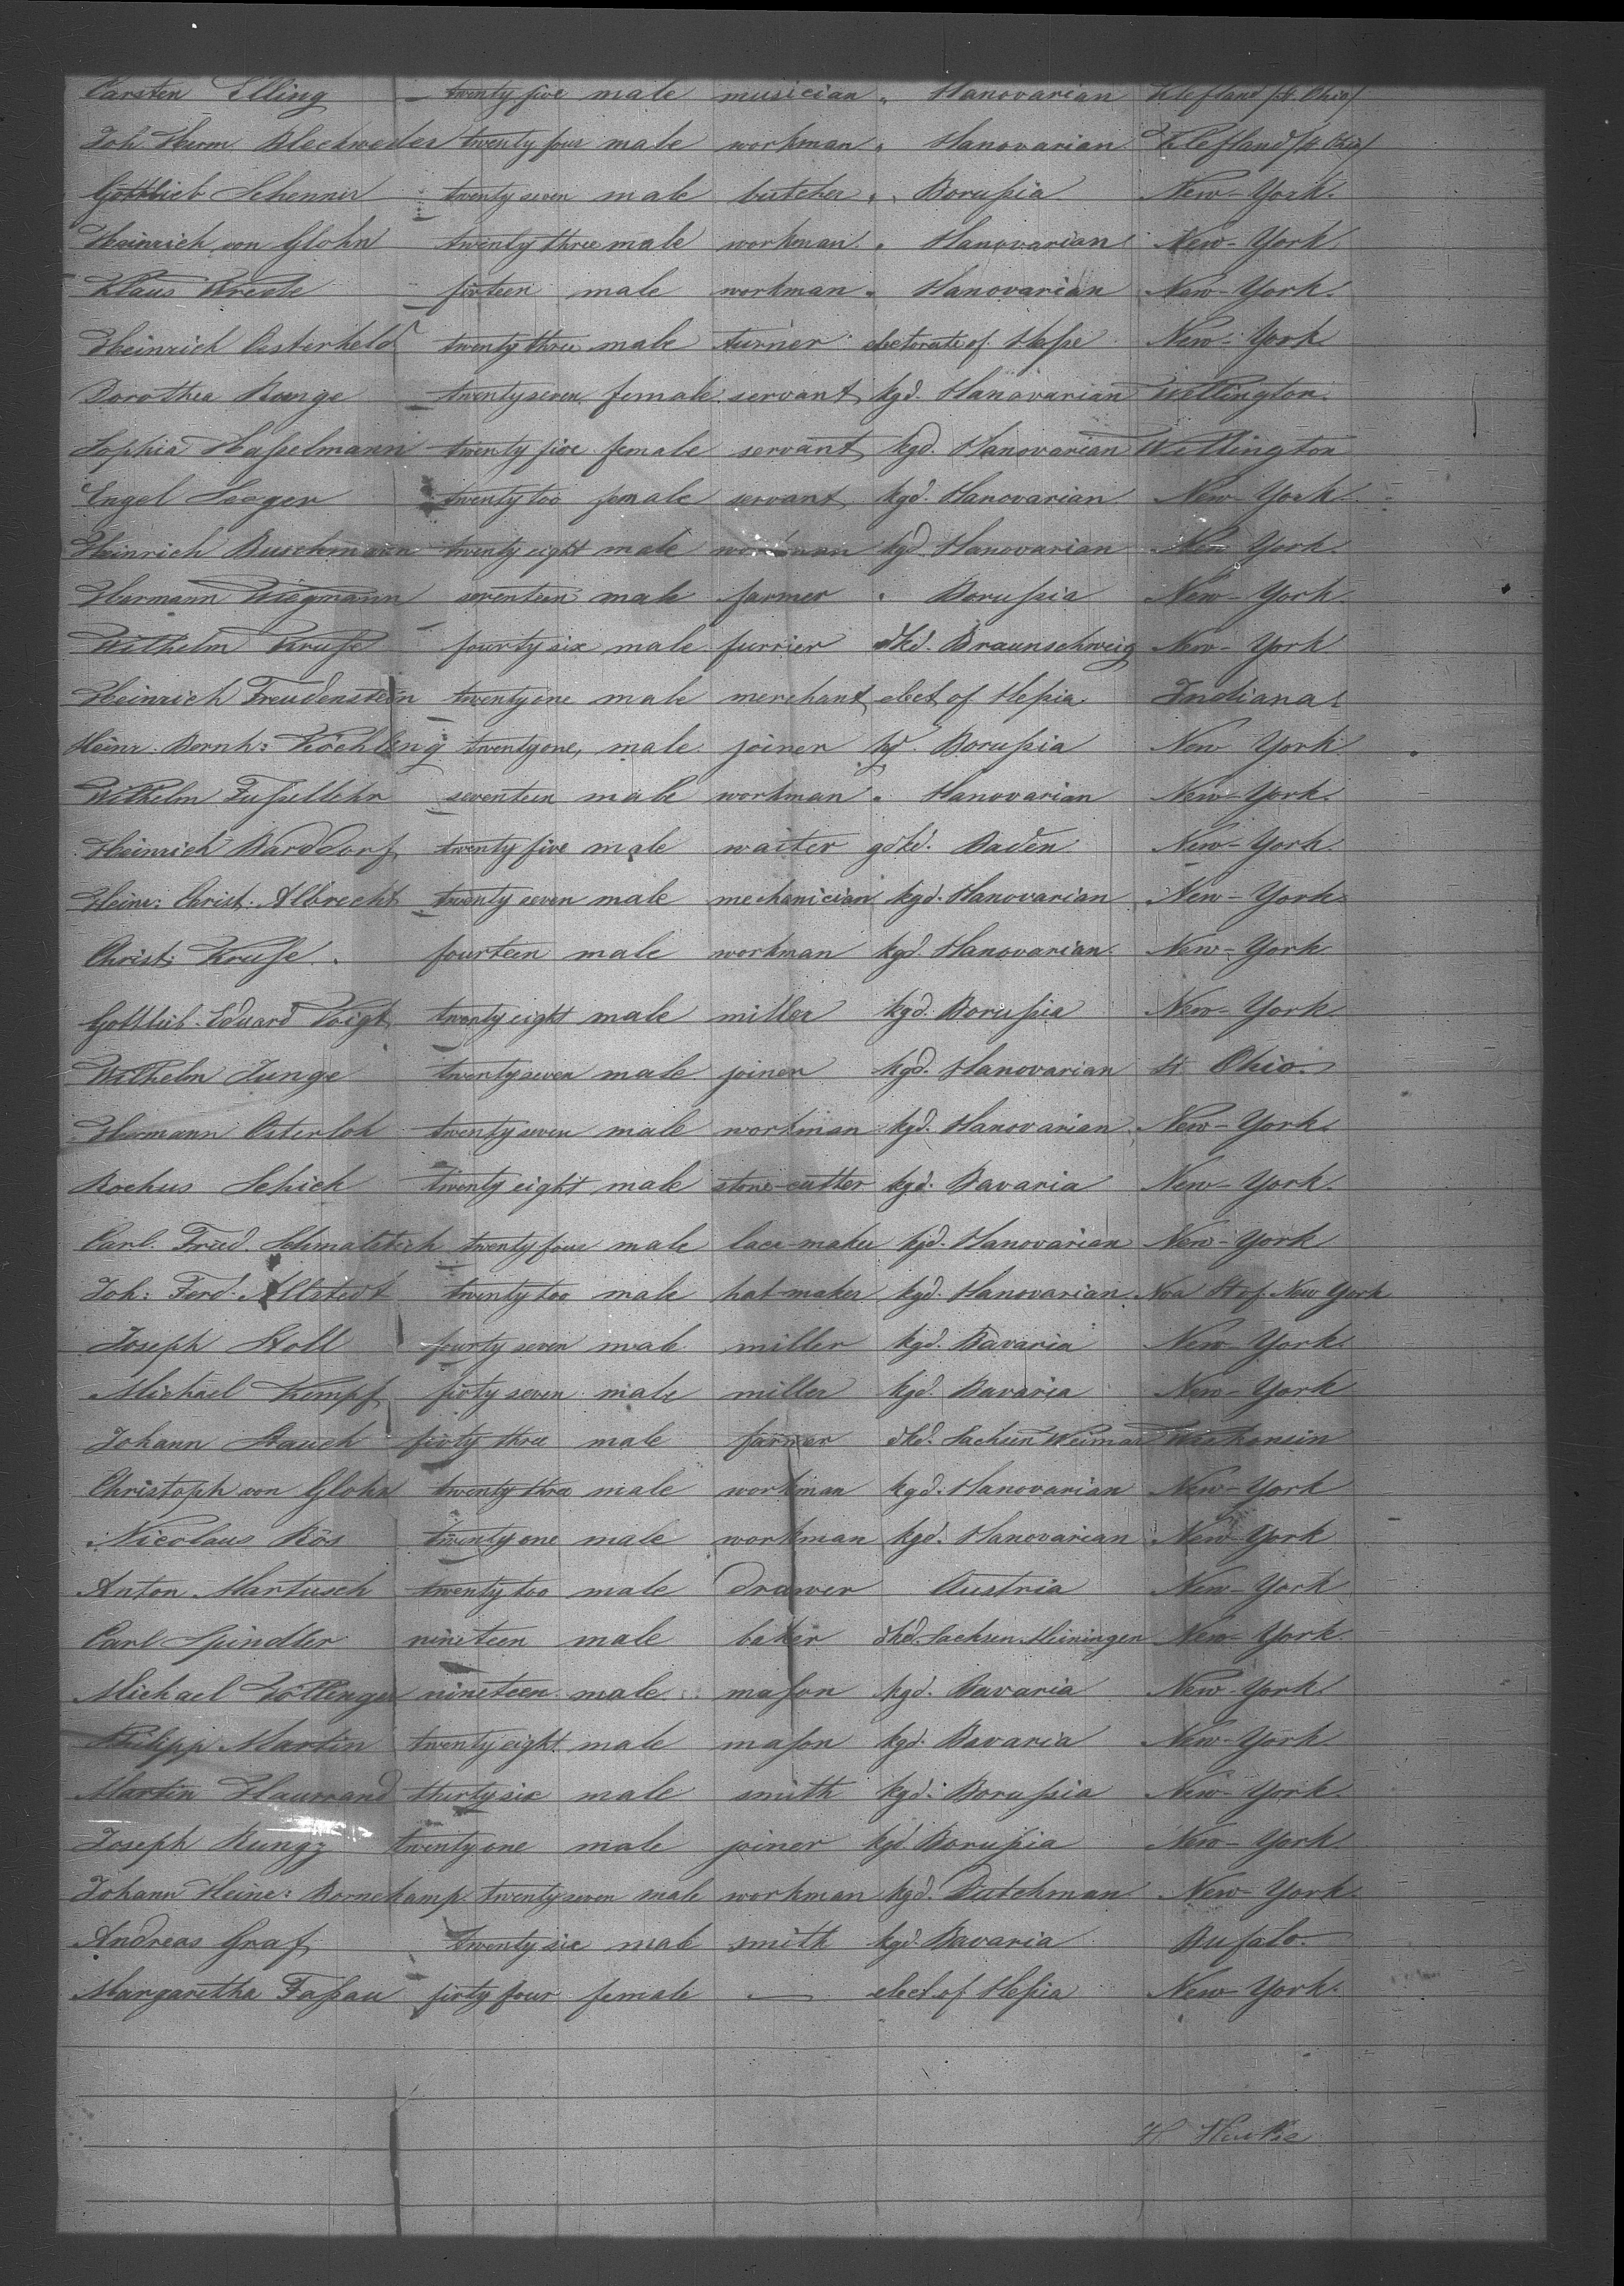 Carsten Elling twenty five male musician " Hanovarian Klefland (St. Ohio)
Joh. Herm Blechweder twenty four male workman " Hanovarian Klefland (St. Ohio)
Gottlieb twenty seven male butcher " Borußia New-York.
Heinrich von Glohn twenty three male workman " Hanovarian New-York.
Klaus Wrede male workman " Hanovarian New-York.
Heinrich Osterheld twenty three male turner electorate of Heße New-York
Dorothea Runge twenty seven female servant kgd. Hanovarian Willington.
Sophia Haßelmann twenty five female servant kgd. Hanovarian Willington
Engel Seeger twenty too female servant kgd. Hanovarian New-York
Heinrich Buschmann twenty eight male workman kgd Hanovarian New York.
Hermann Wiegmann seventeen male farmer " Borußia New-York.
Wilhelm Kruse fourty six male furrier dkd. Braunschweig New-York
Heinrich Freudenstein twenty one male merchant elect of Heßia Indiana
Heinr. Bernh: Köchling twenty one, male joiner kgd. Borußia New York
Wilhelm male workman " Hanovarian New-York.
Heinrich Barddorf twenty five male waiter gdkd. Baden New-York
Heinr: Christ. Albrecht twenty seven male mechanician kgd. Hanovarian New-York
Christ: Kruse. fourteen male workman kgd. Hanovarian. New-York
Gottlieb Eduard Voigt twenty eight male miller kgd. Borußia New-York
Wilhelm Junge twenty seven male joiner kgd. Hanovarian St Ohio.
Hermann Osterloh twenty seven male workman kgd. Hanovarian New-York.
Rochus Schich twenty eight male stone-cutter kgd. Bavaria New-York.
Carl. Fried. twenty four male lace-maker kgd. Hanovarian New-York
Joh: Ferd. Allstedt twenty too male hat-maker kgd. Hanovarian St of New York
Joseph Stoll fourty seven male miller kgd. Bavaria New-York.
Michael Kempf fifty seven male miller kgd. Bavaria New-York
Johann Stauch fifty three male farmer dkd. Sachsen Weimar Wiskonsin
Christoph von Glohn twenty three male workman kgd. Hanovarian New-York
Nicolaus Rös twenty one male workman kgd. Hanovarian New-York
Anton Martusch twenty too male drawer Austria New-York
Carl Spindler nineteen male baker dkd. Sachsen Meiningen New-York.
Michael nineteen male mason kgd. Bavaria New-York
Philipp Martin twenty eight male mason kgd. Bavaria New-York
Martin thirty six male smith kgd. Borußia New-York.
Joseph twenty one male joiner kgd. Borußia New-York
Johann Heinr: Bornekamp twenty seven male workman kgd. Dutchman New-York.
Andreas Graf twenty six male smith kgd. Bavaria Bufalo.
Margaretha Faßau fifty four female — elect of Heßia New-York.